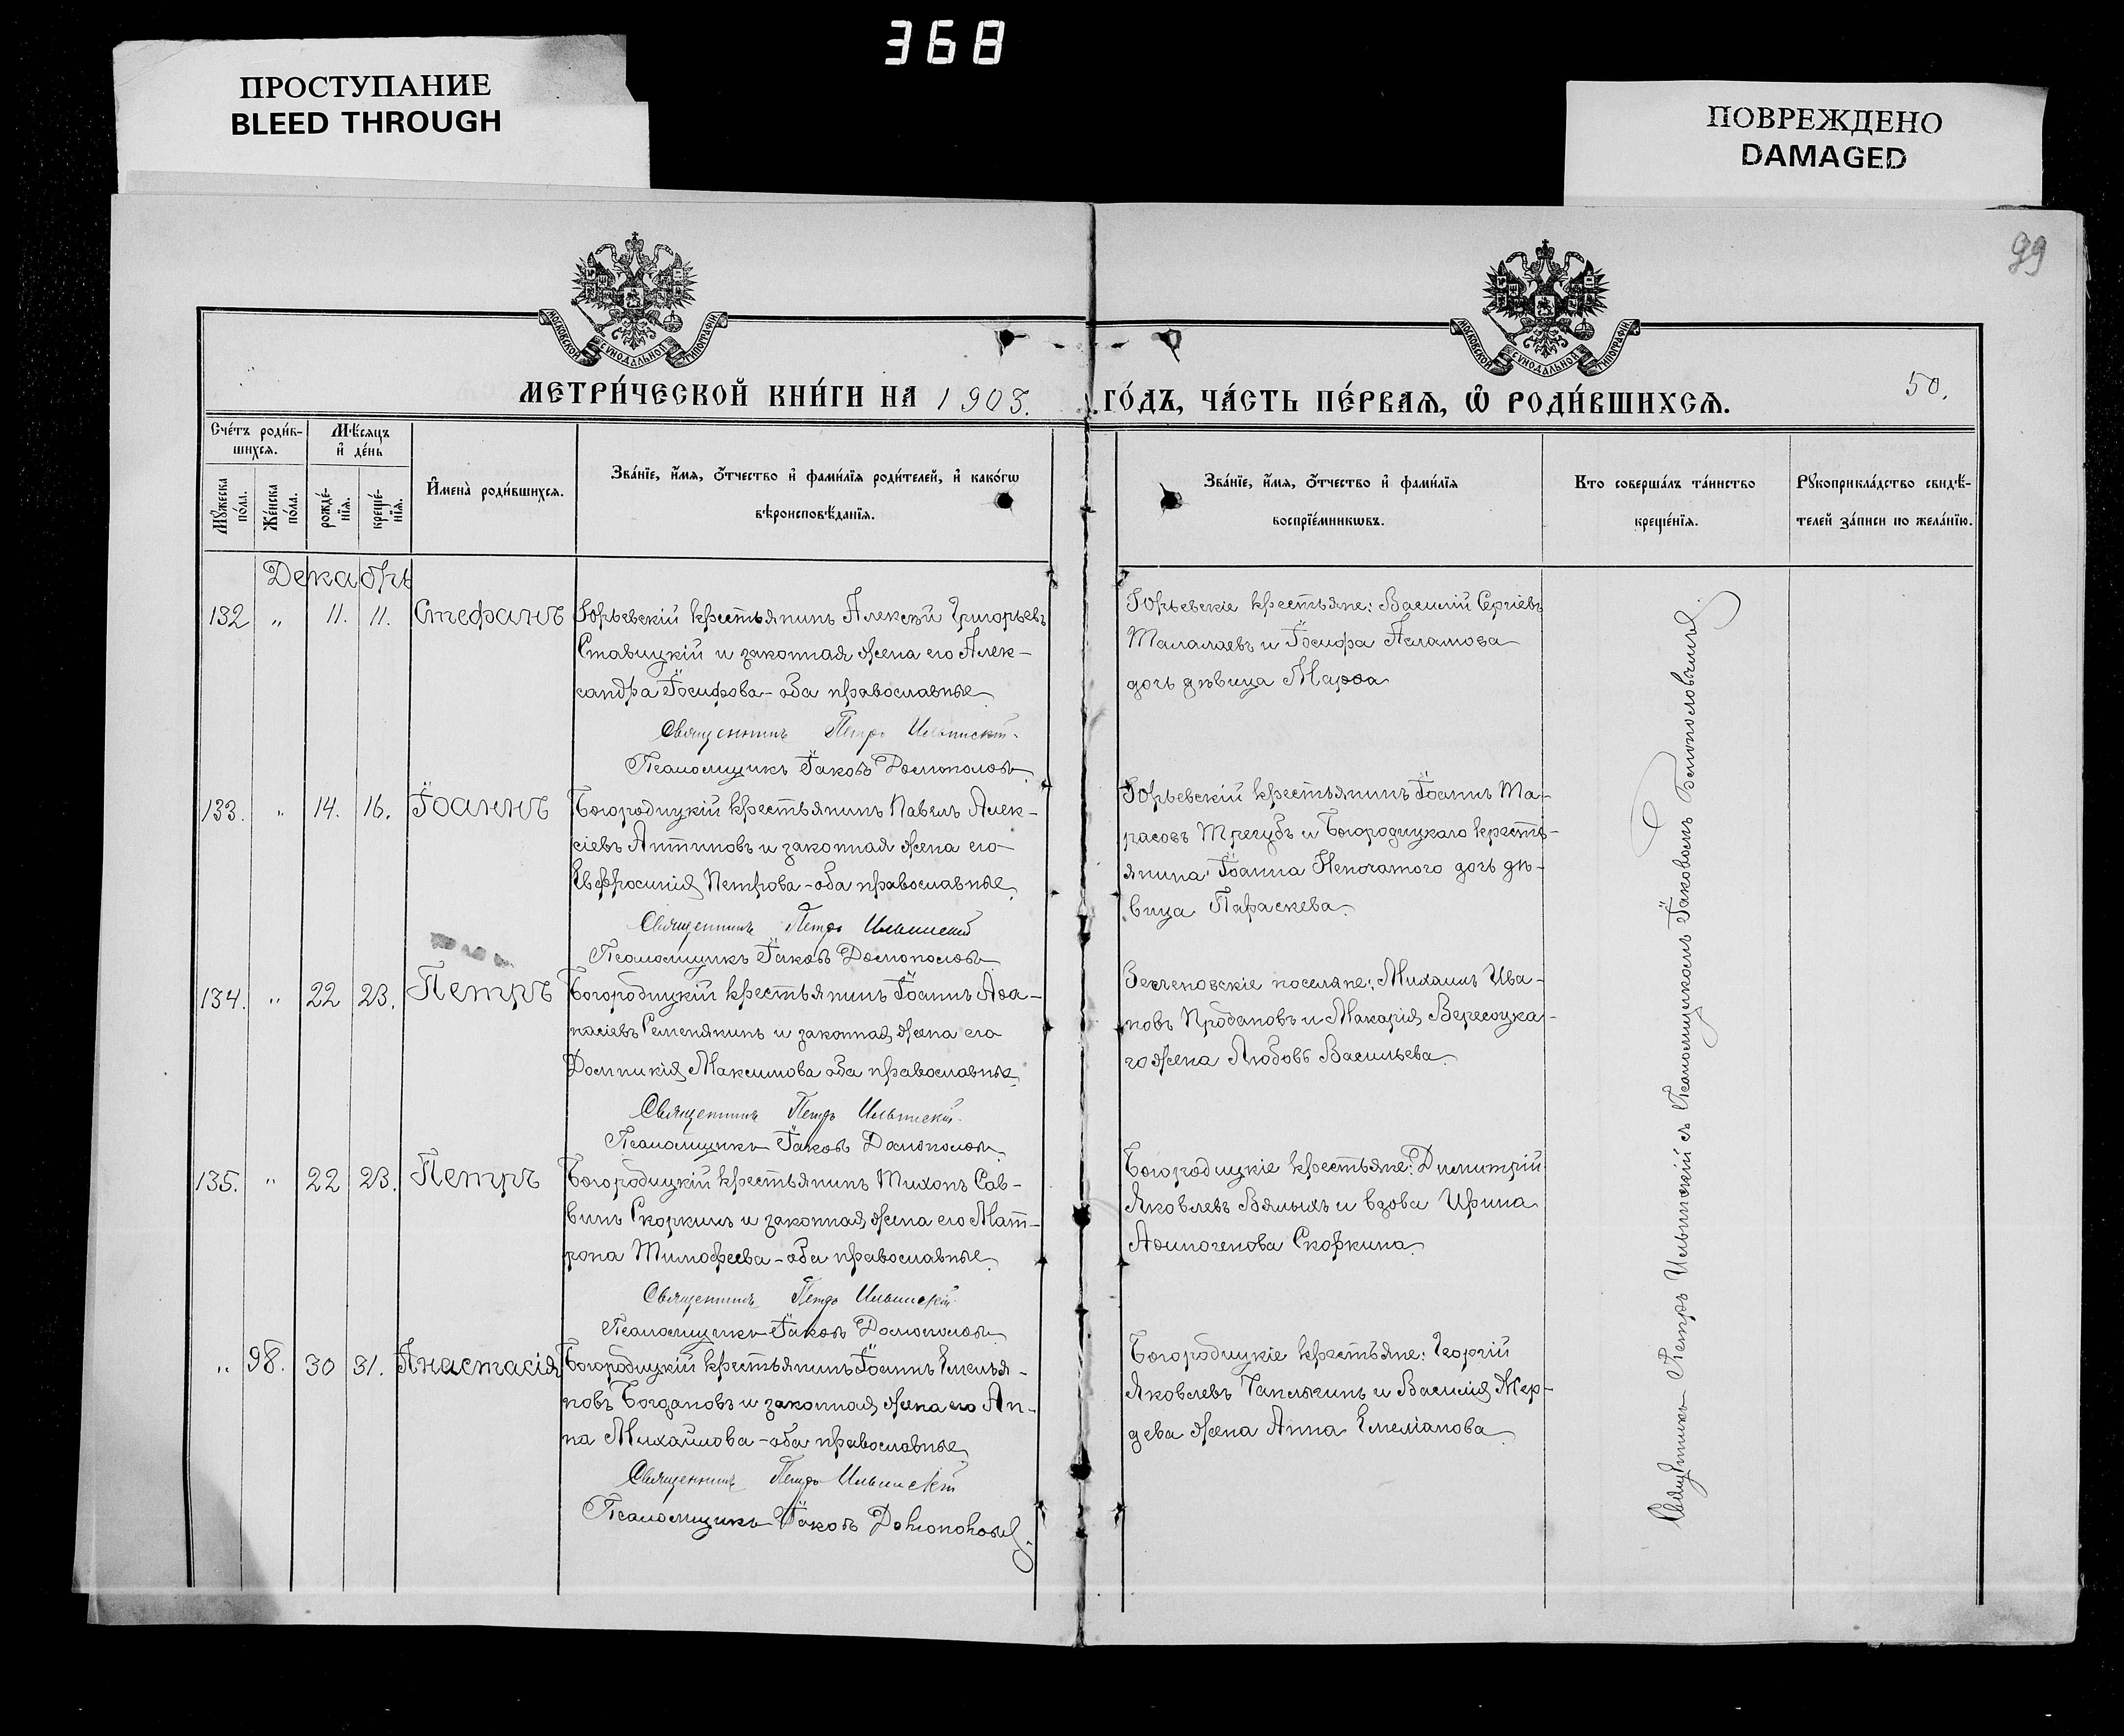 368
ПРОСТУПАНИЕ
BLEED THROUGH
ПОВРЕЖДЕНО
DAMAGED
99
МОСКОВСКОЙ СѴНОДАЛЬНОЙ ТИПОГРАФІИ
МОСКОВСКОЙ СѴНОДАЛЬНОЙ ТИПОГРАФІИ
МЕТРИ́ЧЕСКОЙ КНИ́ГИ НА 1903. ГО́ДЪ, ЧА́СТЬ ПЕ́РВАЯ, Ѽ РОДИ́ВШИХСЯ.
50.
Сче́тъ роди́в-
шихся.
Мѣ́сяцъ
и҆ де́нь
Мꙋ́жеска по́ла.
Же́нска по́ла.
рожде́-
нїя.
креще́-
нїя.
И҆мена̀ роди́вшихся.
Зва́нїе, и҆́мя, ѻ҆́тчество и҆ фами́лїя роди́телей, и҆ како́гѡ
вѣроисповѣ́данїя.
Зва́нїе, и҆́мя, ѻ҆́тчество и҆ фами́лїя
воспрїе́мникѡвъ.
Кто соверша́лъ та́инство
креще́нїя.
Рꙋкоприкла́дство свидѣ́-
телей за́писи по жела́нїю.
Декабрь
132 „ 11. 11. Стефанъ
Юрьевскій крестьянинъ Алексѣй Григорьевъ
Ставицкій и законная жена его Алек-
сандра Іосифова - оба православные
Священникъ Петръ Ильинскій.
Псаломщикъ Іаковъ
Юрьевскіе крестьяне: Василій Сергіевъ
Малалаевъ и Іосифа
дочь дѣвица Марѳа
133. „ 14. 16. Іоаннъ
Богородицкій крестьянинъ Павелъ Алек-
сіевъ Антиповъ и законная жена его
Евфросинія Петрова - оба православные
Священникъ Петръ Ильинскій
Псаломщикъ Іаковъ
Юрьевскій крестьянинъ Іоаннъ Та-
расовъ Трегубъ и Богородицкаго кресть-
янина Іоанна Непочатого дочь дѣ-
вица Параскева
134. „ 22 23. Петръ
Богородицкій крестьянинъ Іоаннъ Аѳа-
насіевъ Семенякинъ и законная жена его
Домникія Максимова оба православные
Священникъ Петръ Ильинскій.
Псаломщикъ Іаковъ
поселяне: Михаилъ Ива-
новъ Продановъ и Макарія Вересоцка-
го жена Любовь Васильева
135. „ 22 23. Петръ
Богородицкій крестьянинъ Тихонъ Сав-
винъ Скоркинъ и законная жена его Мат-
рона Тимофеева - оба православные
Священникъ Петръ Ильинскій.
Псаломщикъ Іаковъ
Богородицкіе крестьяне: Димитрій
Яковлевъ Вялыхъ и вдова Ирина
Аѳиногенова Скоркина
„ 98. 30 31. Анастасія
Богородицкій крестьянинъ Іоаннъ Емелья-
новъ Богдановъ и законная жена его Ан-
на Михайлова - оба православные
Священникъ Петръ Ильинскій
Псаломщикъ Іаковъ
Богородицкіе крестьяне: Георгій
Яковлевъ Чаплыгинъ и Василія Жер-
дева жена Анна Емеліанова
Священникъ Петръ Ильинскій съ Псаломщикомъ Іаковомъ